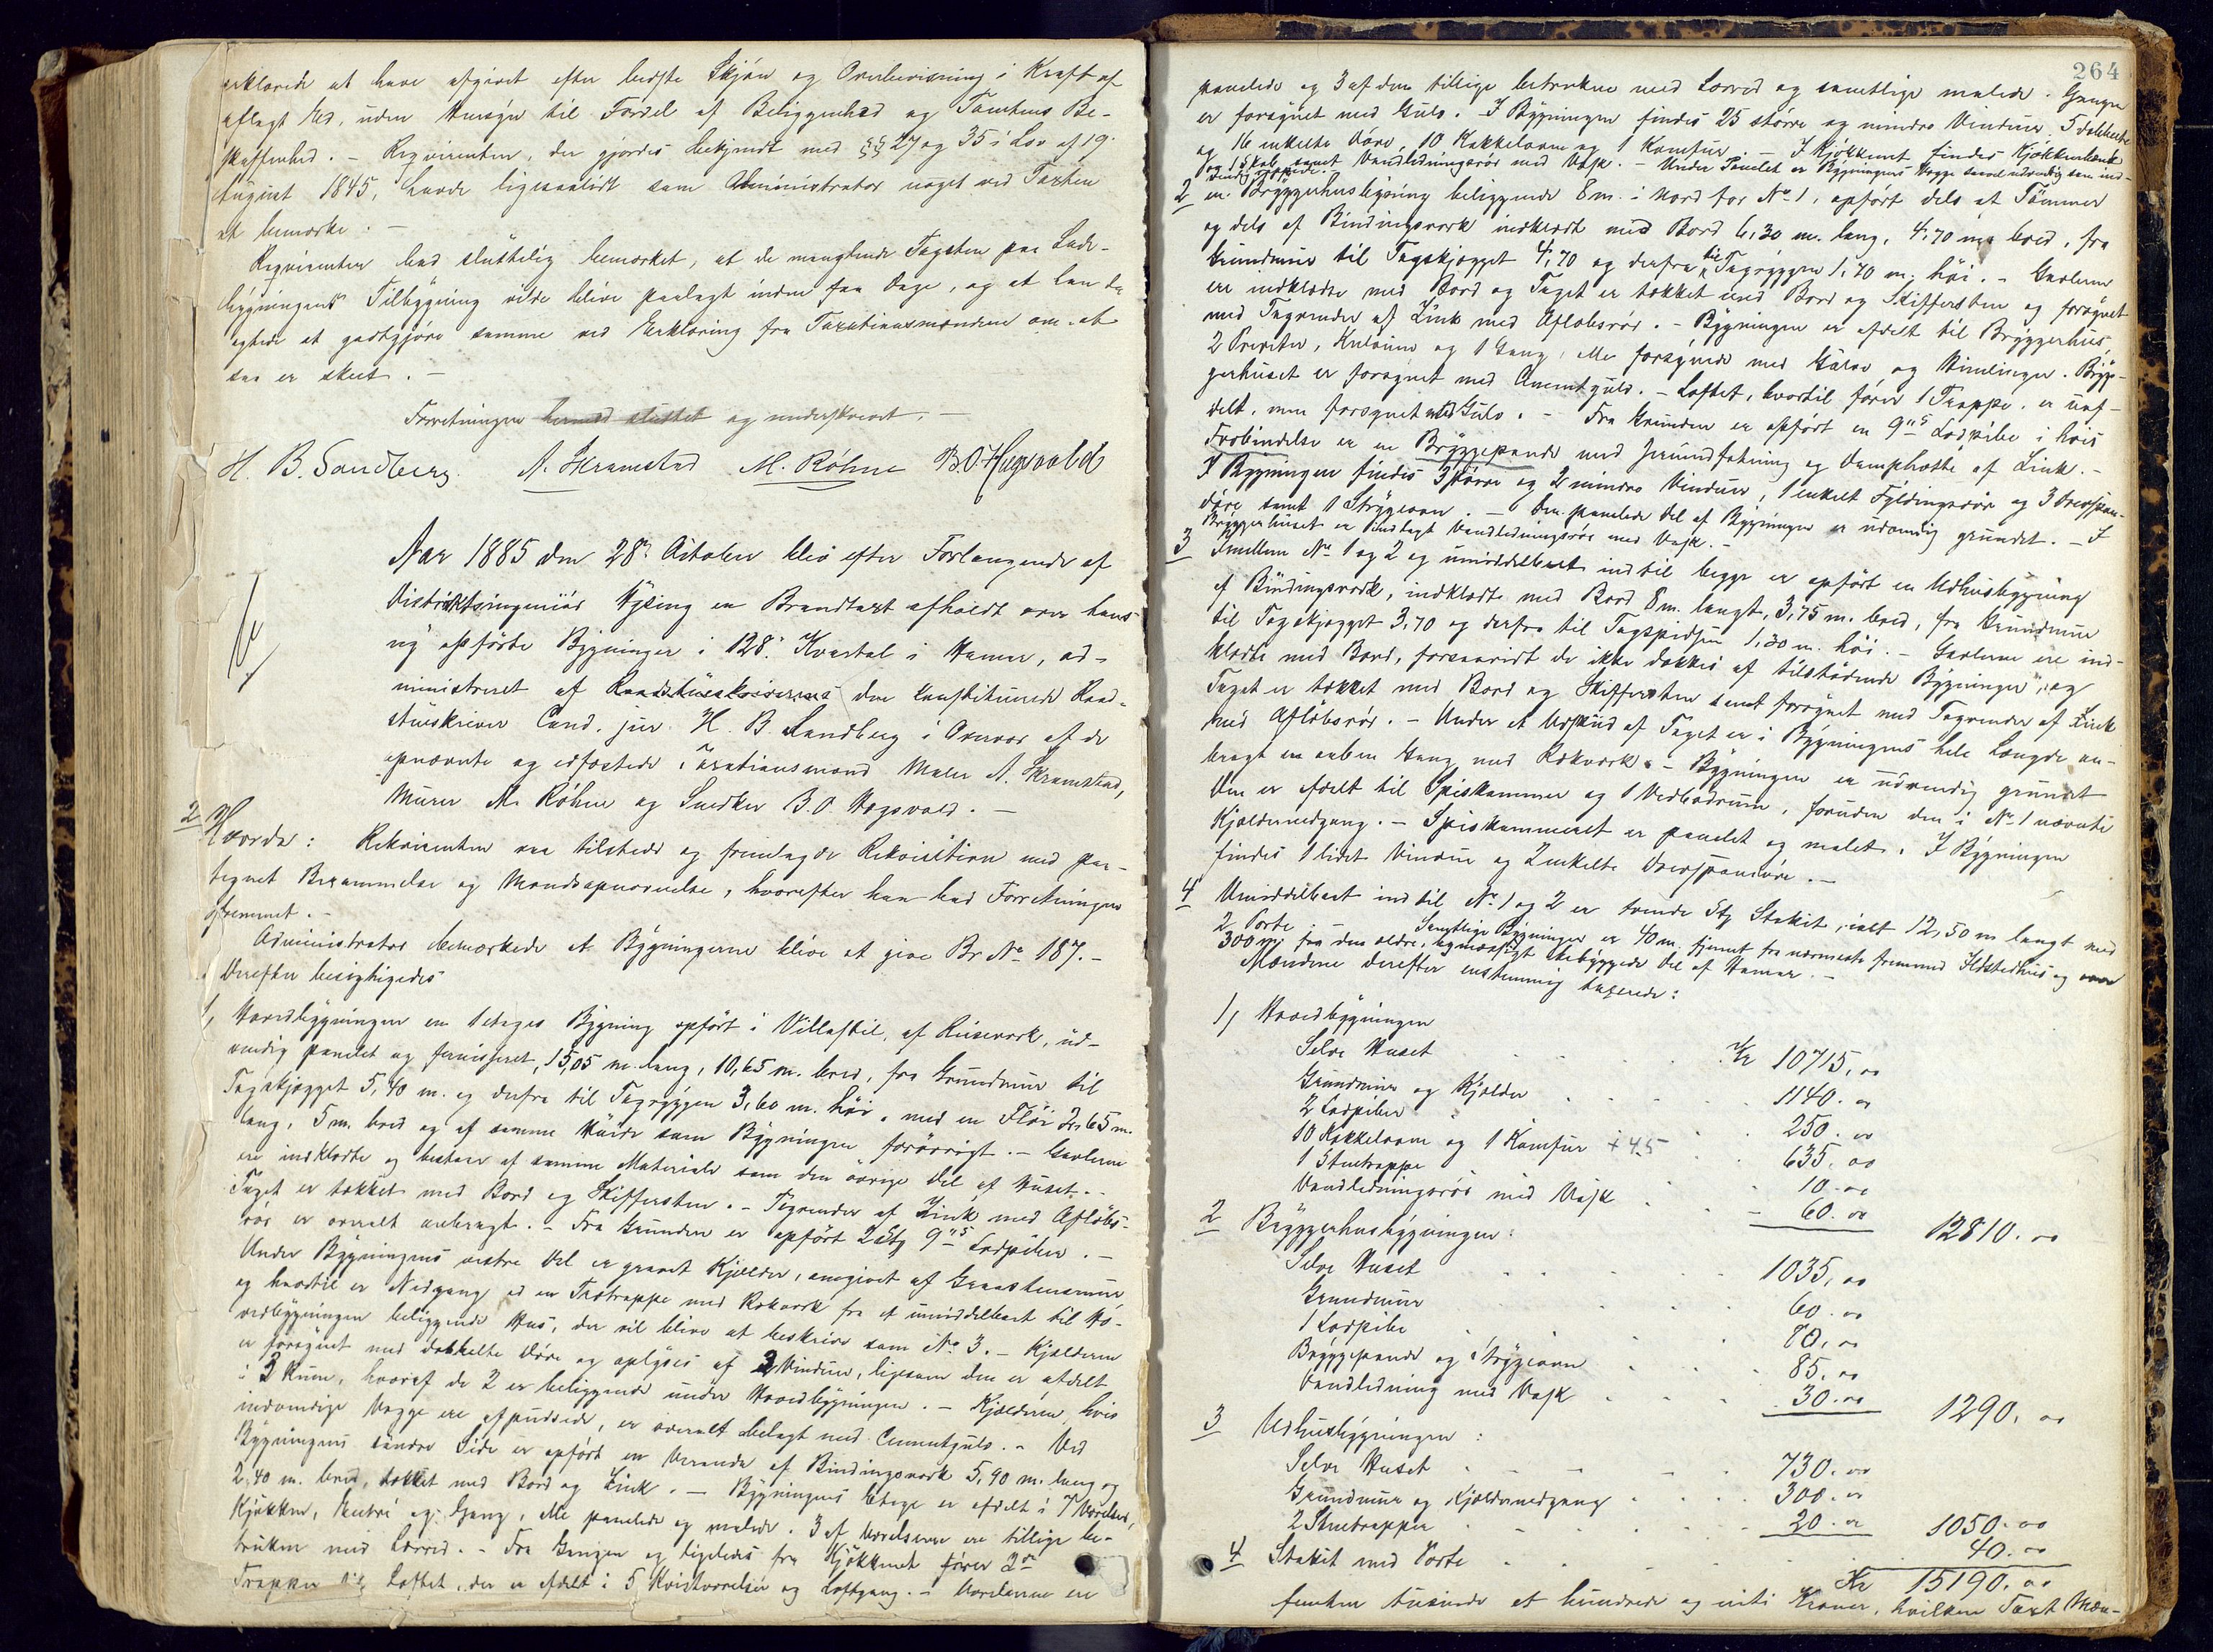 erklærede at have afgivet efter bedste Skjøn og Overbevisning i Kraft af
aflagt Ed, uden Hensyn til Fordel af Beliggenhed og Tomtens Be-
skaffenhed. - Reqvirenten, der gjordes bekjendt med §§ 27 og 35 i Lov af 19.
August 1845, havde ligesaalidt som Administrator noget ved Taxten
at bemærke. -
Reqvirenten bad sluttelig bemærket, at de manglende Tagsten paa Lade-
bygningens Tilbygning vilde blive paalagt inden faa Dage, og at han da
agtede at godtgjøre samme ved Erklæring fra Taxationsmændene om at
saa er skeet. -
Forretningen hermed sluttet og underskrevet. -
H. B. Sandberg. A. Skramstad M. Røhne B. O. Hagsvold
Aar 1885 den 28de October blev efter Forlangende af
Districtsingeniør Hysing en Brandtaxt afholdt over hans
ny opførte Bygninger i 128. Kvartal i Hamar, ad-
ministreret af Raadstueskriverens den constituerede Raad-
stueskriver Cand. jur. H. B. Sandberg i Overvær af de
opnævnte og edfæstede Taxationsmænd Maler A. Skramstad,
Murer M. Røhne og Snedker B. O. Hagsvold. -
2 Hvorda: Rekvirenten var tilstede og fremlagde Rekvisition med paa-
tegnet Berammelse og Mandsopnævnelse, hvorefter han bad Forretningen
fremmet. -
Administrator bemærkede at Bygningerne blive at give Br. No 187. -
Derefter besigtigedes
1, Hovedbygningen en 1etages Bygning opført i Villastil, af Reisverk, ud-
vendig panelet og ferniseret, 15,05 m. lang, 10,65 m. bred, fra Grundmur til
Tagskjægget 5,40 m. og derfra til Tagryggen 3,60 m. høi, med en Fløi 2,65 m.
lang, 5 m. bred og af samme Høide som Bygningen forøvrigt. - Gavlerne
ere indklædte og bestaar af samme Materiale som den øvrige Del af Huset. -
Taget er tækket med Bord og Skiffersten. - Tagrender af Zink med Afløbs-
rør er overalt anbragt. - Fra Grunden er opført 2 Stk 9"s Lodpiber. -
Under Bygningens vestre Del er gravet Kjælder, omgivet af Graastensmur
og hvortil er Nedgang ad en Trætrappe med Rækværk fra et umiddelbart til Ho-
vedbygningen beliggende Hus, der vil blive at beskrive som No 3. - Kjælderen
er forsynet med dobbelte Døre og oplyses af 3 Vinduer, ligesom den er afdelt
i 3 Rum, hvoraf de 2 er beliggende under Hovedbygningen. - Kjælderen, hvis
indvendige Vægge ere afpudsede, er overalt belagt med Cementgulv. - Ved
Bygningens søndre Side er opført en Veranda af Bindingsværk 5,90 m. lang og
2,40 m. bred, tækket med Bord og Zink. - Bygningens Etage er afdelt i 7 Værelser,
Kjøkken, Entré og Gang, alle panelede og malede. 3 af Værelserne ere tillige be-
trukne med Lærred. - Fra Gangen og ligeledes fra Kjøkkenet fører 2de
Trapper til Loftet, der er afdelt i 5 Kvistværelser og Loftgang. - Værelserne ere
264
panelede og 3 af dem tillige betrukne med Lærred og samtlige malede. Gangen
er forsynet med Gulv. I Bygningen findes 25 større og mindre Vinduer, 5 dobbelte
og 16 enkelte Døre, 10 Kakkelovne og 1 Komfur. - I Kjøkkenet findes Kjøkkenbænk
og 1 Skab samt Vandledningsrør med Vask. - Under Panelet er Bygningens Vægge saavel udvendig som ind-
vendig
2 en Bryggerhusbygning beliggende 8 m. i Nord for No 1, opført dels af Tømmer
og dels af Bindingsværk indklædt med Bord 6,30 m. lang, 4,70 m. bred, fra
Grundmur til Tagskjægget 4,70 og derfra til Tagryggen 1,70 m. høi. - Gavlerne
ere indklædte med Bord og Taget er tækket med Bord og Skiffersten og forsynet
med Tagrender af Zink med Afløbsrør. - Bygningen er afdelt til Bryggerhus,
2 Priveter, Kulrum og 1 Gang, alle forsynede med Gulve og Himlinger. Bryg-
gerhuset er forsynet med Cementgulv. - Loftet, hvortil fører 1 Trappe, er uaf-
delt, men forsynet med Gulv. - Fra Grunden er opført en 9"s Lodpibe i hvis
Forbindelse er en Bryggepande med Jernindfatning og Damphætte af Zink. -
I Bygningen findes 3 større og 2 mindre Vinduer, 1 enkelt Fyldingsdør og 3
døre samt 1 Strygeovn. - Den panelede Del af Bygningen er udvendig grundet. - I
Bryggerhuset er indlagt Vandledningsrør med Vask. -
3 Imellem No 1 og 2 og umiddelbart ind til begge er opført en Udhusbygning
af Bindingsværk, indklædt med Bord 8 m. langt, 3,75 m. bred, fra Grundmur
til Tagskjægget 3,70 og derfra til Tagspidsen 1,30 m. høi. - Gavlerne ere ind-
klædte med Bord, forsaavidt de ikke dækkes af tilstødende Bygninger, og
Taget er tækket med Bord og Skiffersten samt forsynet med Tagrender af Zink
med Afløbsrør. - Under et Udskud af Taget er i Bygningens hele Længde an-
bragt en aaben Gang med Rækværk. - Bygningen er udvendig grundet
Den er afdelt til Spiskammer og 1 Vedbodrum, foruden den i No 1 nævnte
Kjældernedgang. - Spiskammeret er panelet og malet. I Bygningen
findes 1 lidet Vindue og 2 enkelte -
4 Umiddelbart ind til No 1 og 2 er tvende Stk Stakit, ialt 12,50 m langt med
2 Porte. - Samtlige Bygninger er 40 m. fjernet fra nærmeste fremmed Ildstedhus og over
300 m. fra den ældre, regmæssigt bebyggede Del af Hamar. -
Mændene derefter enstemmig taxerede:
1, Hovedbygningen
Selve Huset Kr 10715,00
Grundmur og Kjælder 1140.00
2 Lodpiber 250.00
10 Kakkelovne og 1 Komfur + 45 635,00
1 Stentrappe 10.00
Vandledningsrør med Vask 60.00 12810.00
2 Bryggerhusbygningen:
Selve Huset 1035,00
Grundmur 60.00
1 Lodpibe 80,00
Bryggepande og Strygeovn 85,00
Vandledning med Vask 30.00 1290,00
3 Udhusbygningen:
Selve Huset 730.00
Grundmur og Kjældernedgang 300.00
2 Stentrapper 20.00 1050.00
4 Stakit med Porte 40.00
Kr 15190,00
femten tusinde et hundrede og niti Kroner, hvilken Taxt Mæn-